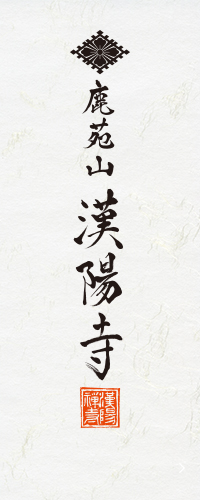 鹿苑山
漢陽寺
漢陽
禅寺